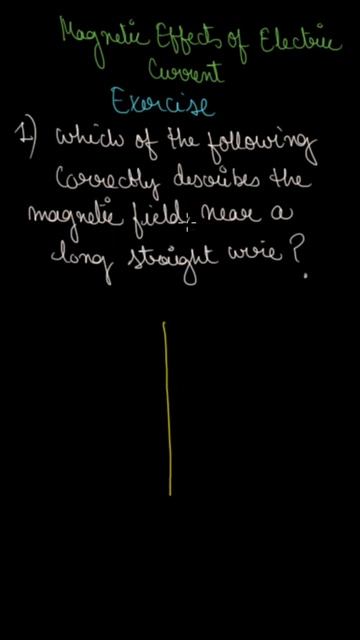 Magnetic Effects of Electric
Current
Exercise
1) Which of the following
Correctly describes the
magnetic field near a
long straight wire?